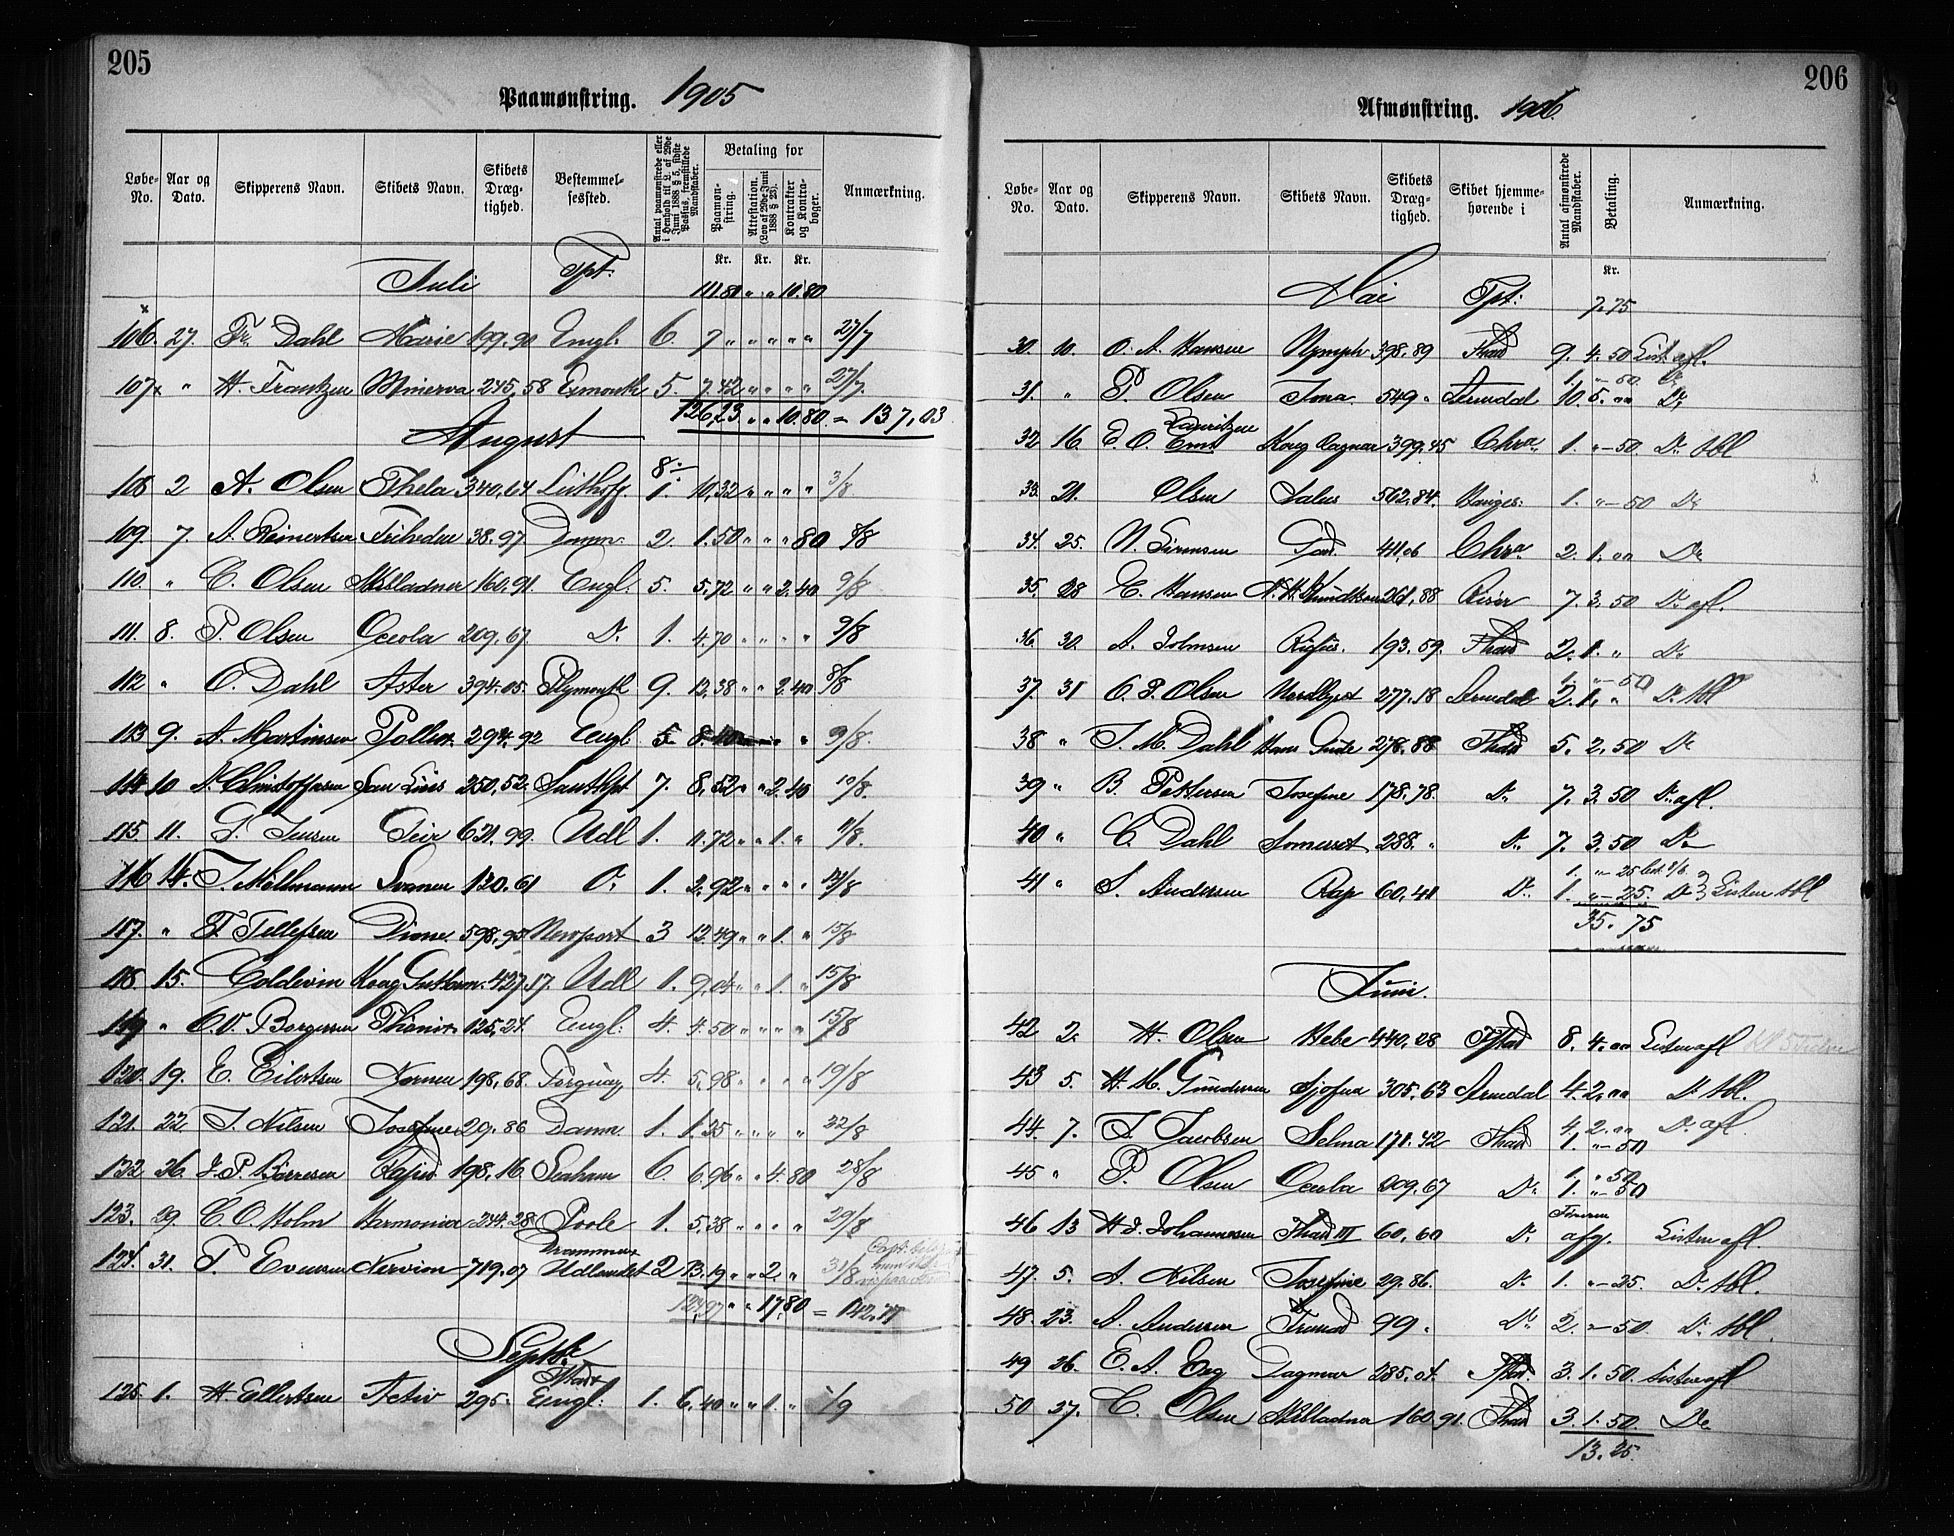 205
Paamønstring. 1905
Løbe-No. Aar og Dato. Skipperens Navn. Skibets Navn. Skibets Dræg-tighed. Bestemmel-sessted. Antal paamønstrede eller i Henhold til L. af 29de Juni 1888 § 5, sidste Passus, fremstillede Mandskaber. Betaling for Paamøn-string. Attestation. (Lov af 29de Juni 1888 § 23). Kontrakter og Kontra-bøger. Anmærkning.
Kr. Kr. Kr.
Juli Tpt: 111.81 " " 10.80
106. 27. Fr. Dahl Marie 199,90 Engl. 6. 7 " " " " " 27/7
107 " H. Frantzen Minerva 245,58 Exmouth 5. 7.42 " " " " 27/7.
126,23 " " 10.80 = 137,03
August
108 2 A. Olsen Thela 340,64 8 1. 10,32 " " " " 3/8
109. 7. A. Reinertsen Friheden 38.97 Danm. 2. 1.50 " " " 80 8/8
110. " C. Olsen Skibladner 160.91. Engl. 5. 5,72 " " 2.40 9/8
111. 8. P. Olsen Oceola 209.67. Do 1. 4.70 " " " " 9/8
112 " O. Dahl Aster 394.05. Plymouth 9. 12,38 " " 2.40 8/8
113 9. A. Martinsen Pollux. 294.92 Engl 5 8.40 " " 9/8.
114 10 N. Christoffersen San Luis 250,52. Southpt 7. 8,52 " " 2.40 10/8.
115. 11. G. Jensen Geir 631.99. Udl 1. 11.72 " " 1. " 11/8.
116 14. J. Möllmann Svanen 120.61 Do 1. 2,92 " " " " 14/8
117. " T. Tellefsen Dione 598,95 Newport 3 12.49 " " 1. " 15/8
118. 15. Coldevin Kong Guthorm. 427.17. Udl 1. 9,04 " " 1. " 15/8
119 " O. V. Børgesen Phönix 125,24. Engl: 4. 4.50 " " " " 15/8
120. 19. E. Eilertsen Nornen 198,68. Torquay 4. 5,98 " " " " 19/8
121. 22. J. Nilsen Josefine 29.86 Danm. 1. 1.25 " " " " 22/8
122 26. J. P. Børresen 198,16. Seaham 6. 6.96 " " 4.80 28/8
123. 29. C. O. Holm Harmonia 244.28 Poole 1. 5,38 " " " " 29/8
124. 31. P. Evensen Nervion 719.07 Drammen Udlandet 2 13.19 " " 2. " 31/8
" " 17.80 = 142.77
Septbr
125. 1. H. Ellertsen Activ 295. Engl: 1. 6,40 " " 1. " 1/9
206
Afmønstring. 1906.
Løbe-No. Aar og Dato. Skipperens Navn. Skibets Navn. Skibets Dræg-tighed. Skibet hjemme-hørende i Antal afmønstrede Mandskaber. Betaling. Anmærkning.
Kr.
Mai Tpt: 7.75
30. 10. O. A. Hansen Nymph 398,89 Fhavn 9. 4.50 List. afl.
1. " - 50. Do
31. " P. Olsen Irma. 549 " Arendal 10. 5. " " Do
32. 16. Lauritzen Kong Ragnar 399.45 Chra. 1. " - 50 Do tbl
33. 21. Olsen Salus 562.84. Hauges: 1. " - 50 Do
34. 25. N. Sørensen 411,06 Chra 2. 1. " " Do
35. 28 C. Hansen N. H. Knudtson 261,88 Risør 7. 3.50 Do afl.
36. 30. A. Johnsen Rufus. 193.59. Fhavn 2. 1. " Do
1. " - 50
37. 31 O. P. Olsen Nordlyset 277.18 Arendal 2. 1. " Do tbl
38 " J. M. Dahl Hans Gude 278.88 Fhavn 5. 2.50 Do
39 " B. Pettersen Josefine 178.78. Do 7. 3.50 Do afl.
40 " C. Dahl Somerset 288. " Do 7. 3.50 Do
1. " - 25
41 " S. Andersen Rap 60,41 Do. 1. " - 25. Do Listen tbl
35.75
Juni.
42 2. H. Olsen Hebe 440.28 Fhavn 8. 4. " " Listen afl
43 5. H. M. Gundersen Sjofna 305.63 Arendal 4. 2. " " Do tbl.
44. 7. J. Jacobsen Selma 171.42 Fhavn 4. 2. " " Do afl.
1. " - 50
45 " P. Olsen Oceola 209,67 Do 1. " 50
1. " - 50
46 13 H. J. Johannesen Fhavn III 60,60 Do Listen afl.
47. 5. A. Nilsen Josefine 29.86. Do 1. " - 25. Do tbl.
48. 23. A. Andersen 99. Do 2. " - 50 Do tbl.
49 26. E. A. Dagmar 285.04. Fhavn. 3. 1.50. Listen afl
50 27. C. Olsen Skibladna 160.91. Fhavn 3. 1.50. Do
13.25.